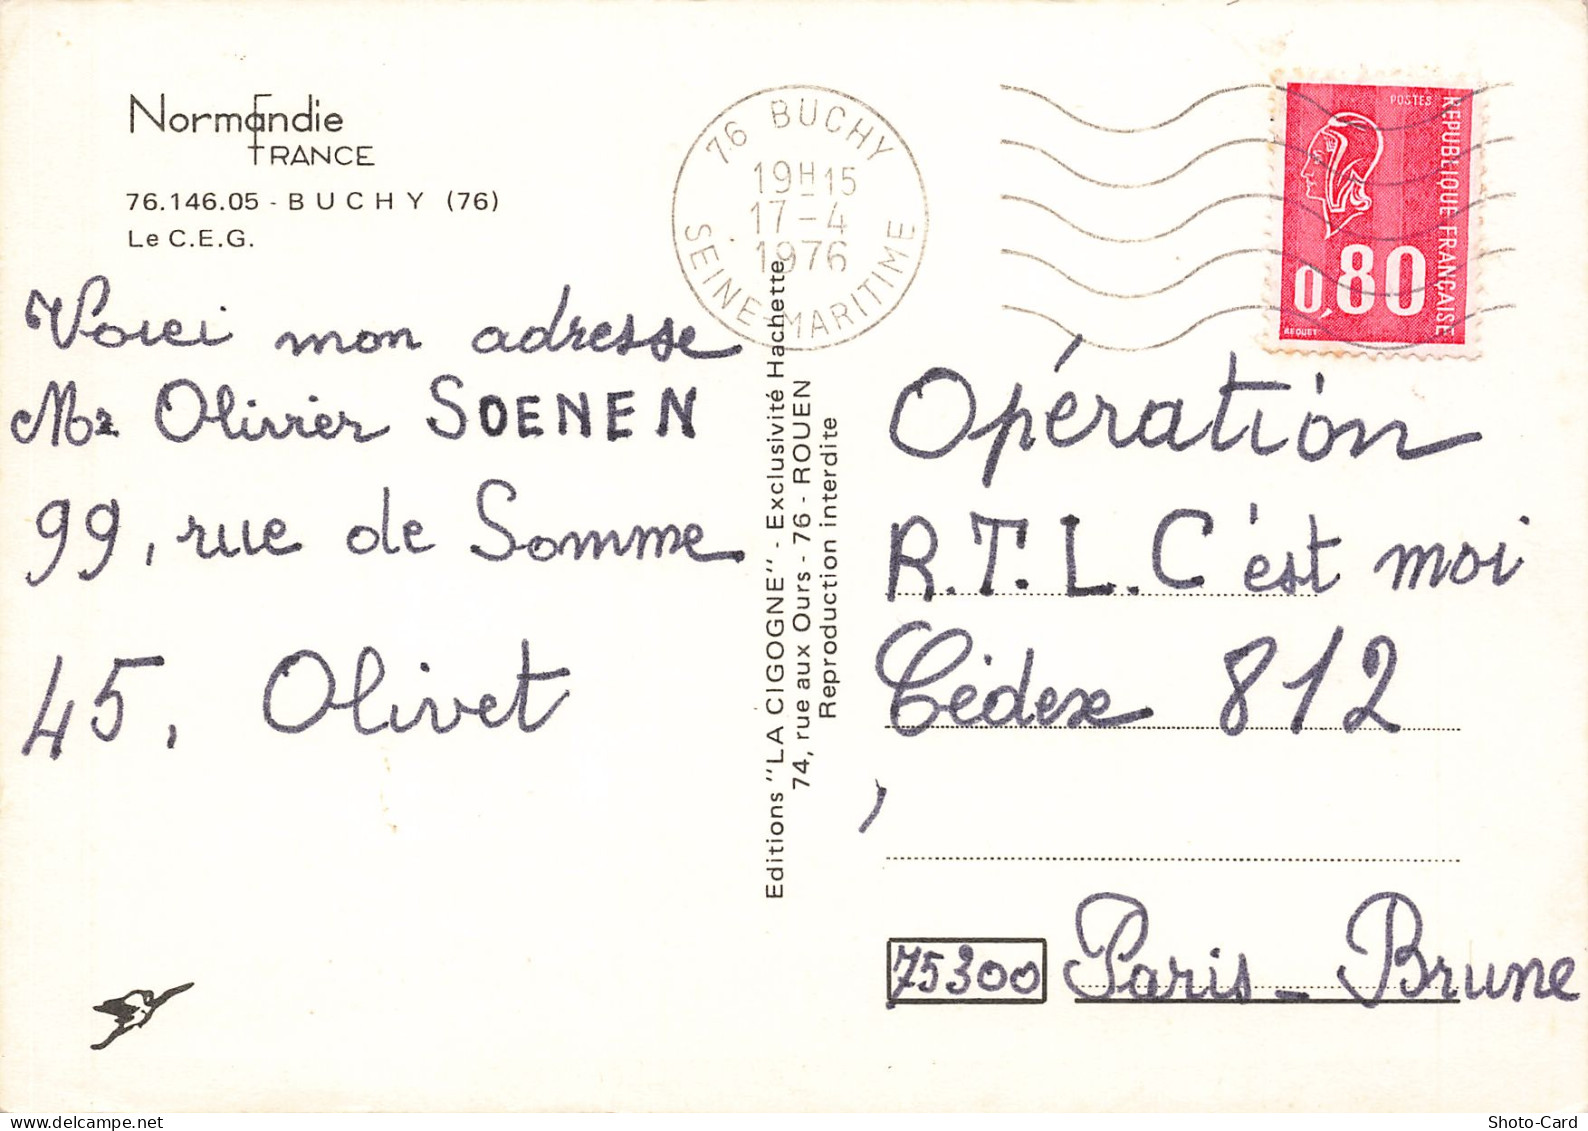 Normandie
FRANCE
76.146.05 - BUCHY (76)
Le C.E.G.
Voici mon adresse
Mr Olivier SOENEN
99, rue de Somme
45, Olivet
76 BUCHY
19H15
17-4
1976
SEINE-MARITIME
Editions "LA CIGOGNE" - Exclusivité Hachette
74, rue aux Ours - 76 - ROUEN
Reproduction interdite
POSTES
REPUBLIQUE FRANÇAISE
0,80
BEQUET
Opération
R.T.L. C'est moi
Cédex 812
,
75300 Paris - Brune
delcampe.net
Shoto-Card